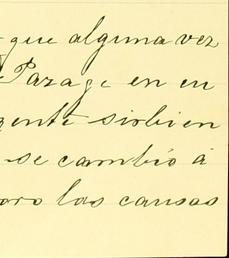 que alguna vez
Parage en en
gente sirbien
se cambió á
oro las causas